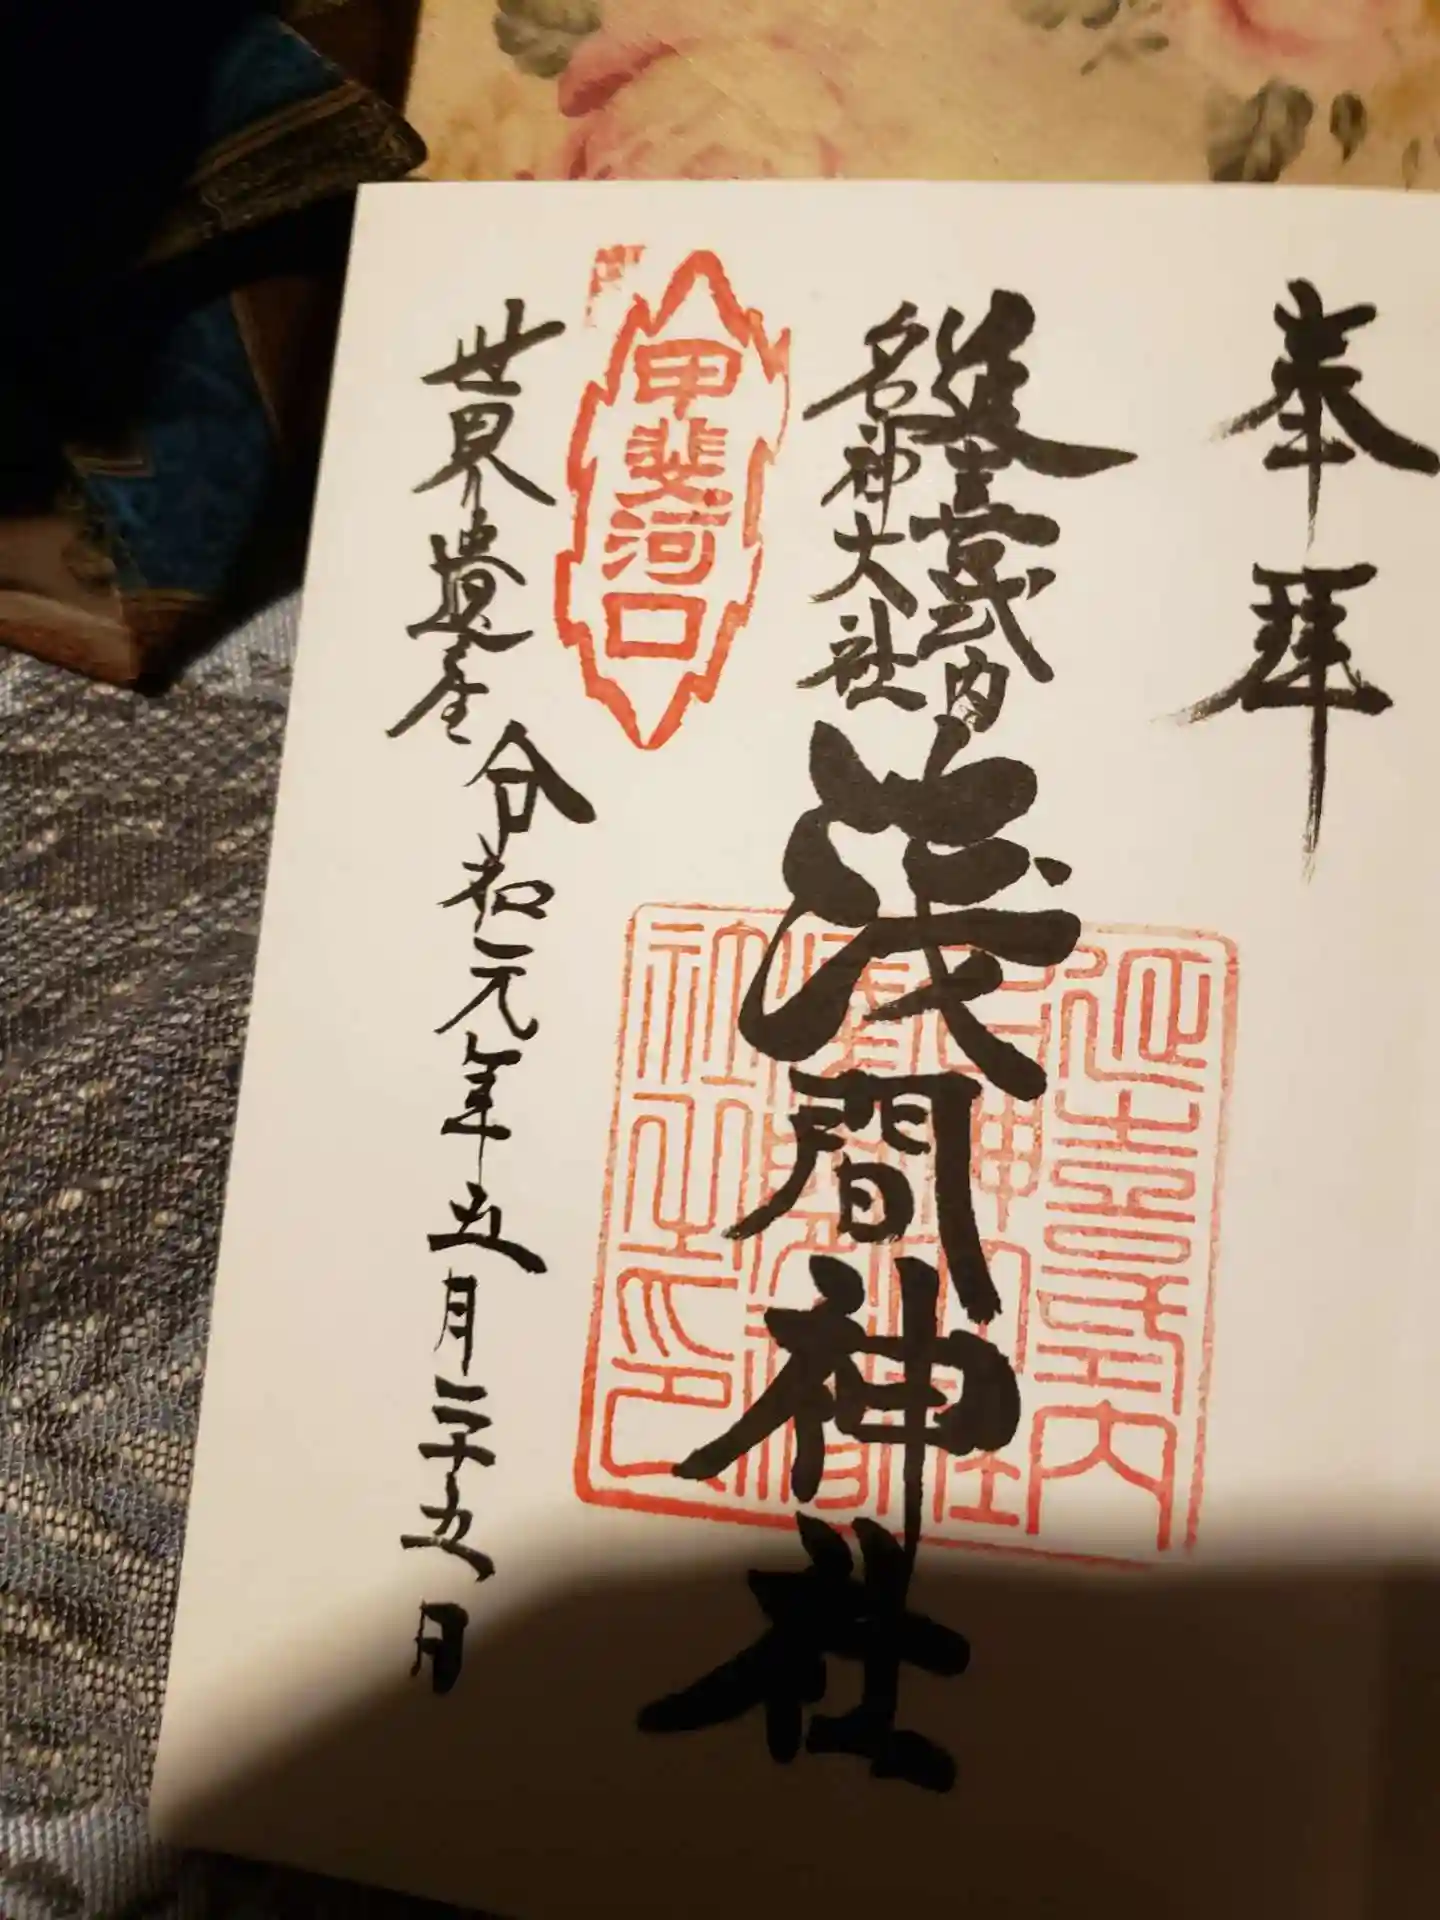 奉拝
延喜式内
名神大社
浅間神社
甲斐河口
世界遺産
令和元年五月二十五日
延喜式内
名神
社之印